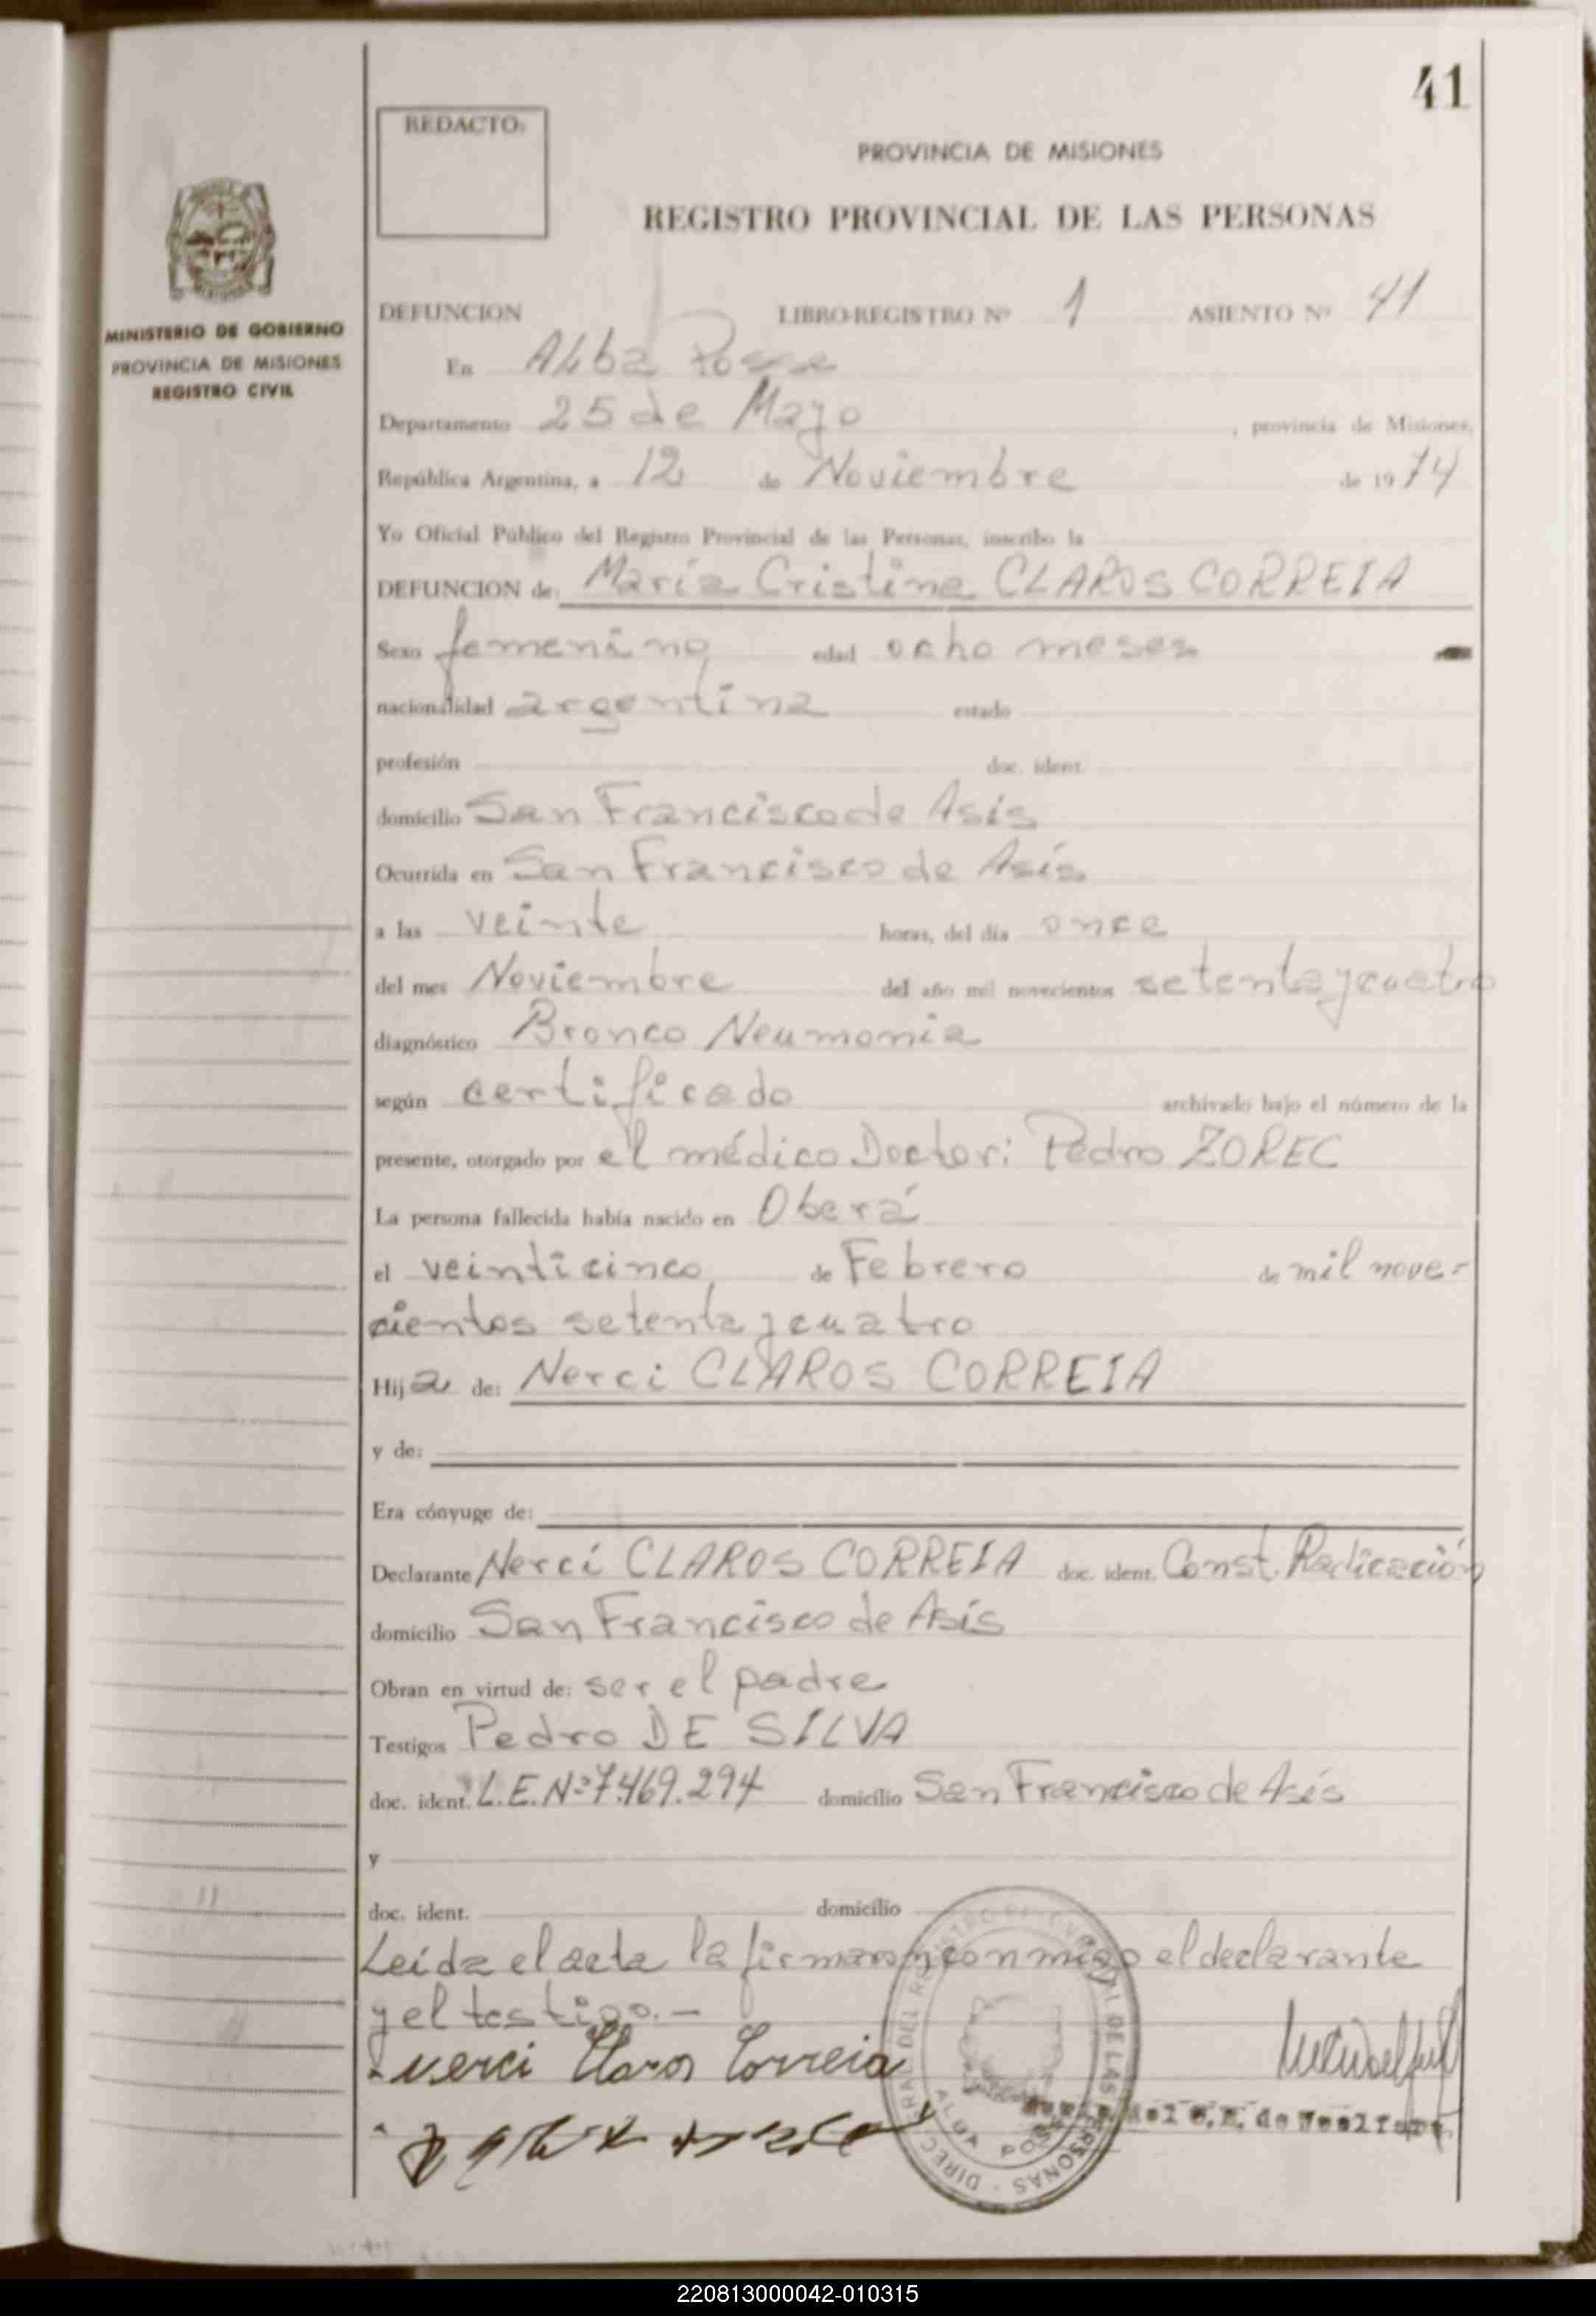 41
REDACTO:
PROVINCIA DE MISIONES
REGISTRO PROVINCIAL DE LAS PERSONAS
MINISTERIO DE GOBIERNO
PROVINCIA DE MISIONES
REGISTRO CIVIL
DEFUNCION LIBRO-REGISTRO Nº 1 ASIENTO Nº 41
En Alba Posse
Departamento 25 de Mayo, provincia de Misiones,
República Argentina, a 12 de Noviembre de 1974
Yo Oficial Público del Registro Provincial de las Personas, inscribo la
DEFUNCION de: María Cristina CLAROS CORREIA
Sexo femenino edad ocho meses
nacionalidad argentina estado
profesión doc. ident.
domicilio San Francisco de Asís
Ocurrida en San Francisco de Asís
a las veinte horas, del día once
del mes Noviembre del año mil novecientos setenta y cuatro
diagnóstico Bronco Neumonia
según certificado archivado bajo el número de la
presente, otorgado por el médico Doctor: Pedro ZOREC
La persona fallecida había nacido en Oberá
el veinticinco de Febrero de mil nove-
cientos setenta y cuatro
Hija de: Nerci CLAROS CORREIA
y de:
Era cónyuge de:
Declarante Nerci CLAROS CORREIA doc. ident. Const. Radicación
domicilio San Francisco de Asís
Obran en virtud de: ser el padre
Testigos Pedro DE SILVA
doc. ident. L.E.Nº 7.469.294 domicilio San Francisco de Asís
y
doc. ident. domicilio
Leída el acta la firmaron conmigo el declarante
y el testigo.-
Nerci Claros Correia
DIREC GRAL DEL REGISTRO PROVINCIAL DE LAS PERSONAS
ALBA POSSE
del C. R. de
220813000042-010315